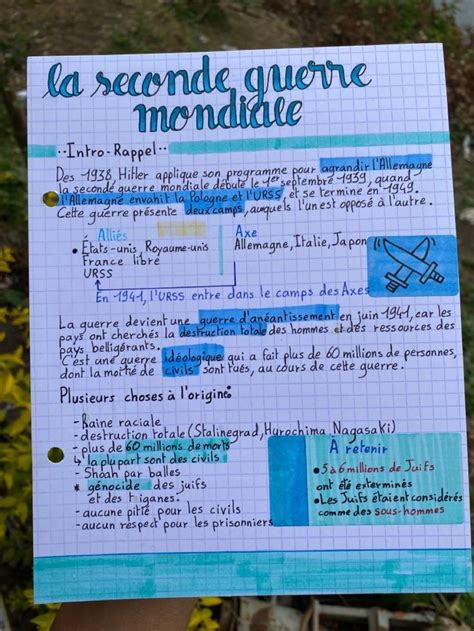 la seconde guerre
mondiale
..Intro-Rappel..
Des 1938, Hitler applique son programme pour agrandir l'Allemagne
la seconde guerre mondiale débute le 1er septembre 1939, quand
l'Allemagne envahit la Pologne et l'URSS, et se termine en 1949.
Cette guerre présente deux camps, auxquels l'un est opposé à l'autre.
Alliés
Axe
• États-unis Royaume-unis
France libre
URSS
Allemagne, Italie, Japon
En 1941, l'URSS entre dans le camps des Axes
La guerre devient une guerre d'anéantissement en juin 1941, car les
pays ont cherchés la destruction totale des hommes et des ressources des
pays belligérants.
C'est une guerre idéologique qui a fait plus de 60 millions de personnes,
dont la moitié de civils sont tués, au cours de cette guerre.
Plusieurs choses à l'origine:
- Haine raciale
- destruction totale (Stalinegrad, Hurochima, Nagasaki)
- plus de 60 millions de morts
↳ la plupart sont des civils
- Shoah par balles
* génocide des juifs
et des Tziganes.
- aucune pitié pour les civils
- aucun respect pour les prisonniers
À retenir
• 5 à 6 millions de Juifs
ont été exterminés
• Les Juifs étaient considérés
comme des sous-hommes